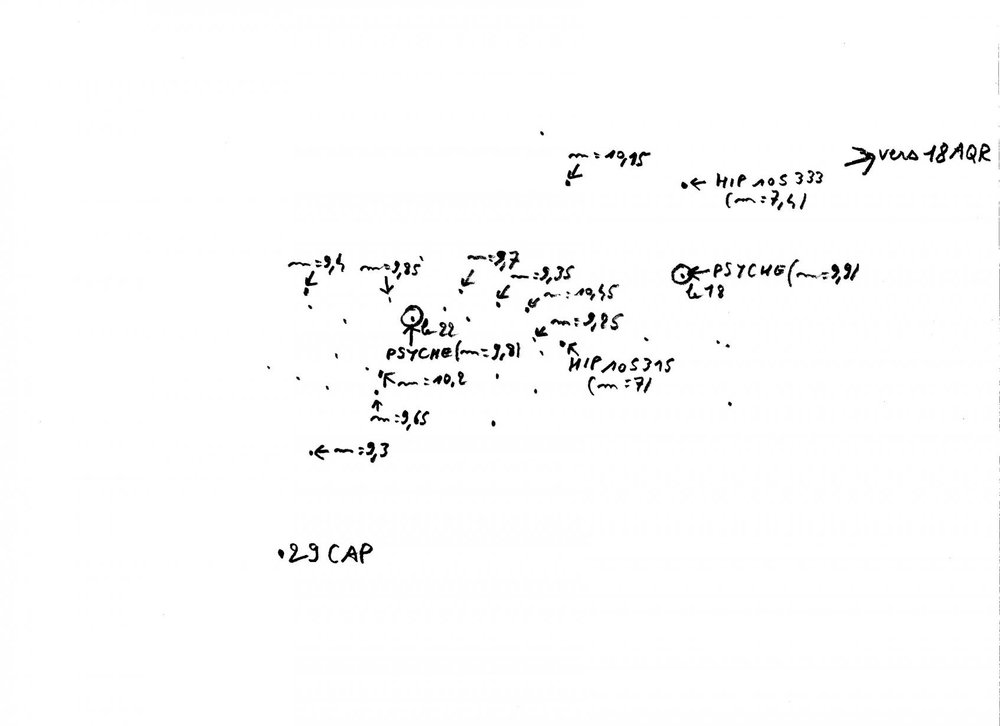 m=10,15
→ vers 18 AQR
← HIP 105 333
(m=7,4)
m=9,4
m=9,85
m=9,7
m=9,35
m=10,45
m=9,85
← PSYCHE (m=9,9)
le 18
le 22
PSYCHE (m=9,8)
HIP 105 315
(m=7)
m=10,2
m=9,65
← m=9,3
29 CAP